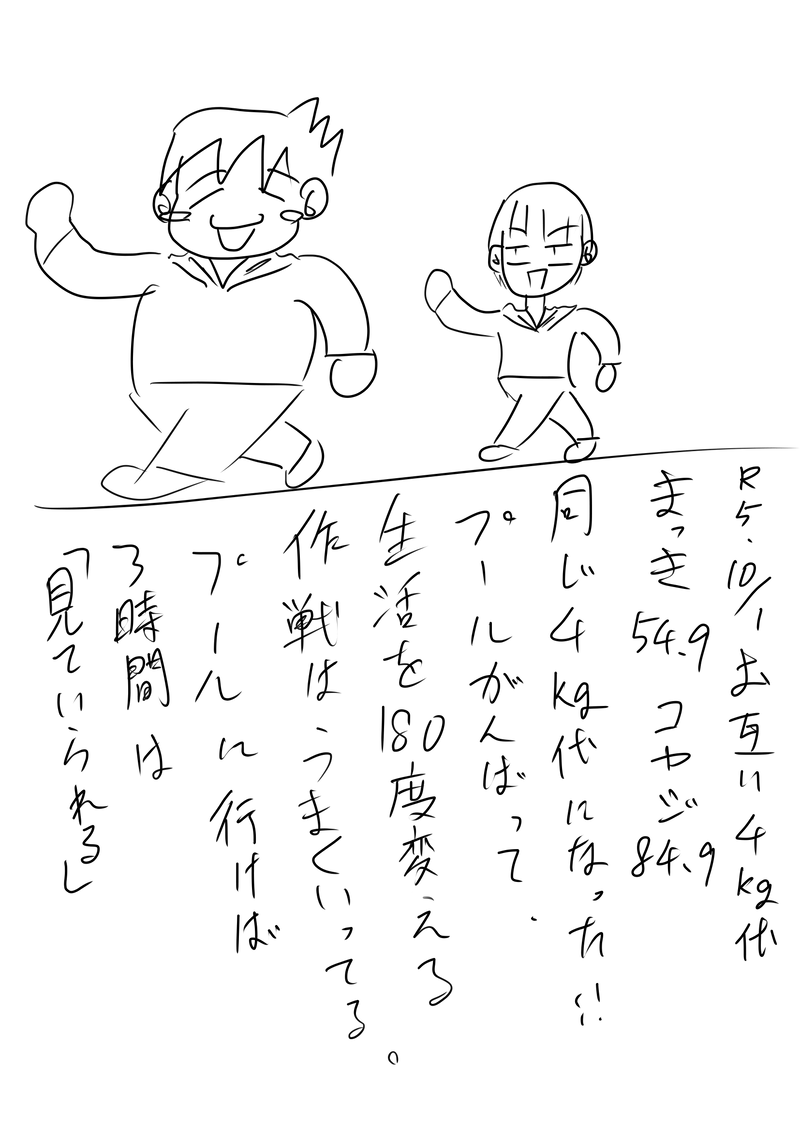 R5.10/1お互い4kg代
まっき54.9 コヤジ84.9
同じ4kg代になった!!
プールがんばって.
生活を180度変える
作戦はうまくいってる。
プールに行けば
3時間は
「見ていられるし